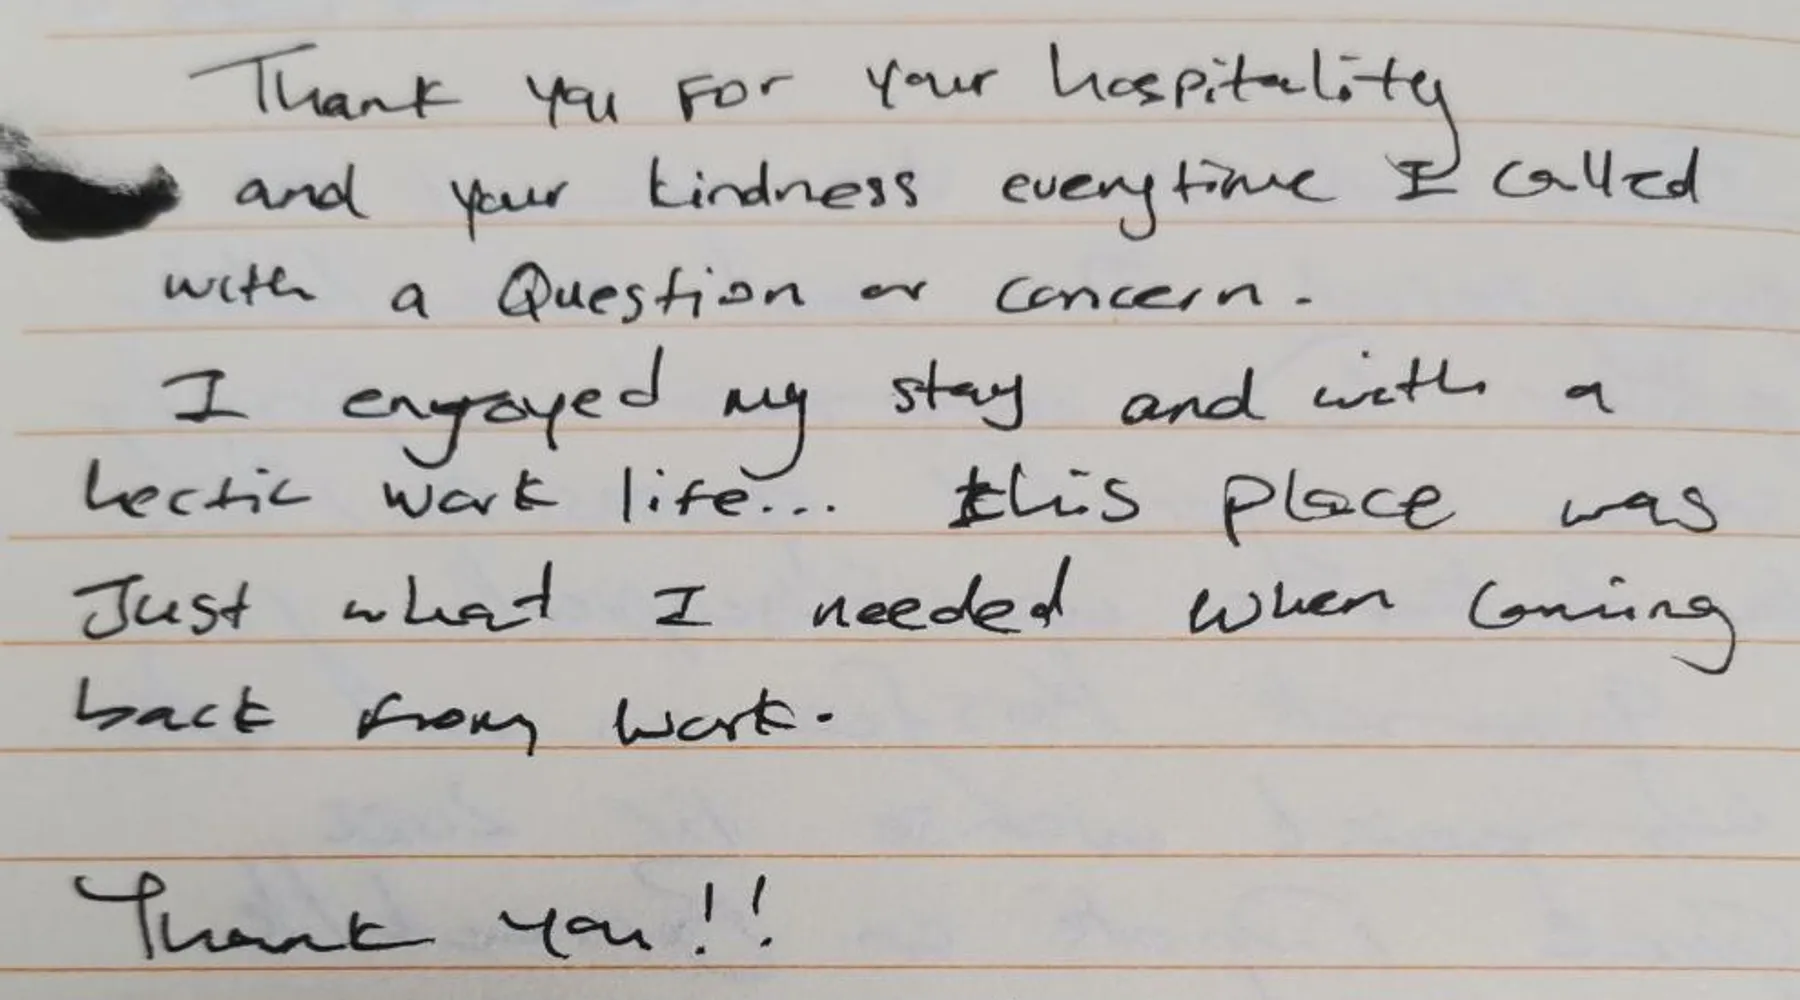 Thank you For your hospitality
and your kindness everytime I called
with a Question or concern.
I engoyed my stay and with a
hectic work life... this place was
Just what I needed when coming
back from work.
Thank you!!